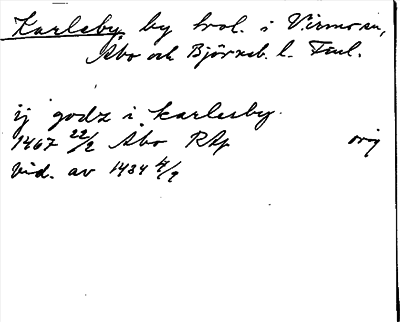 Karleby, by trol. i Virmo sn,
Åbo och Björneb. l. Finl.
ij godz i karlesby.
1467 22/2 Åbo RAp orig
Vid. av 1484 4/9